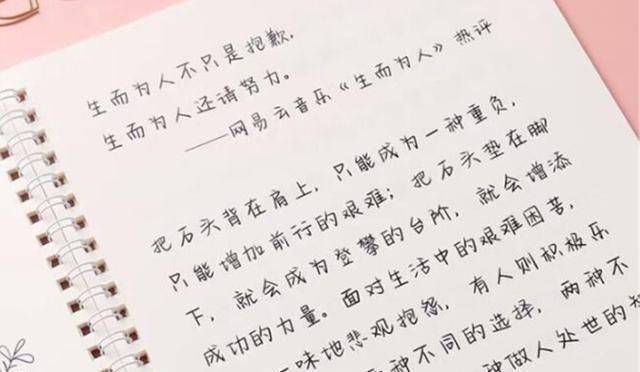 生而为人不只是抱歉，
生而为人还请努力。
——网易云音乐《生而为人》热评
把石头背在肩上，只能成为一种重负，
只能增加前行的艰难；把石头垫在脚
下，就会成为登攀的台阶，就会增添
成功的力量。面对生活中的艰难困苦，
味地悲观抱怨，有人则积极乐
种不同的选择，两种不
种做人处世的